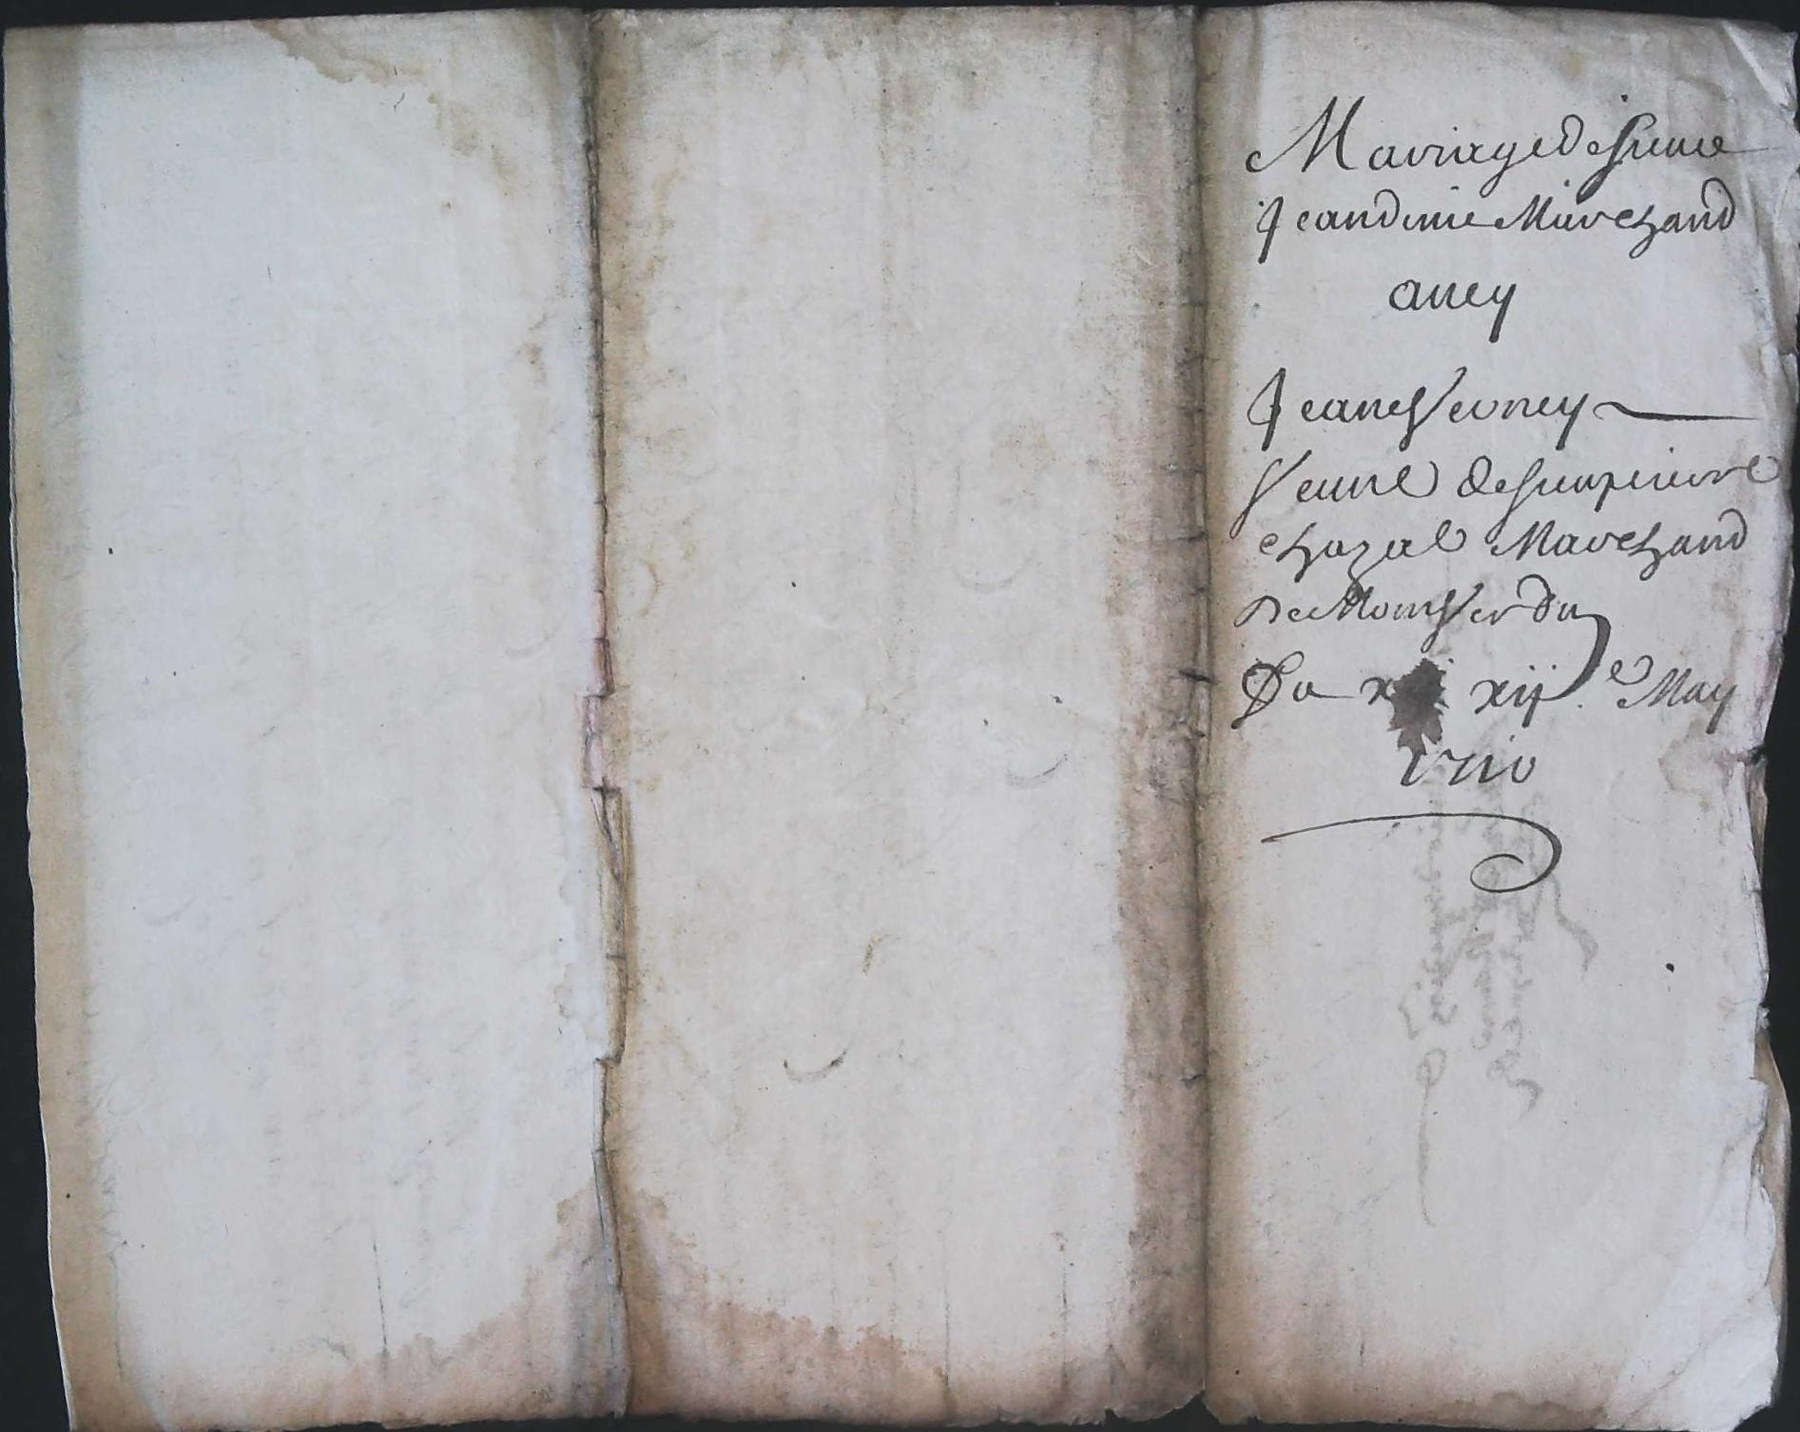 Mariage de sieur
Jean Dinie Marchand
avey
Jeane Verney
Veuve de sieur pierre
chazal Marchand
De Monverdun
Du xij.e May
1710